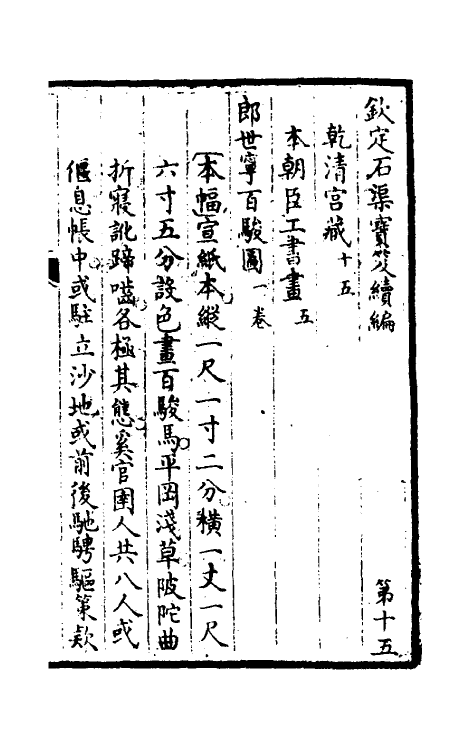 欽定石渠寶笈續編
第十五
乾清宮藏十五
本朝臣工書畫五
郎世寧百駿圖一卷
本幅宣紙本縱一尺一寸二分橫一丈一尺
六寸五分設色畫百駿馬平岡淺草陂陀曲
折寢訛蹄嚙各極其態奚官圉人共八人或
偃息帳中或駐立沙地或前後馳騁驅策款